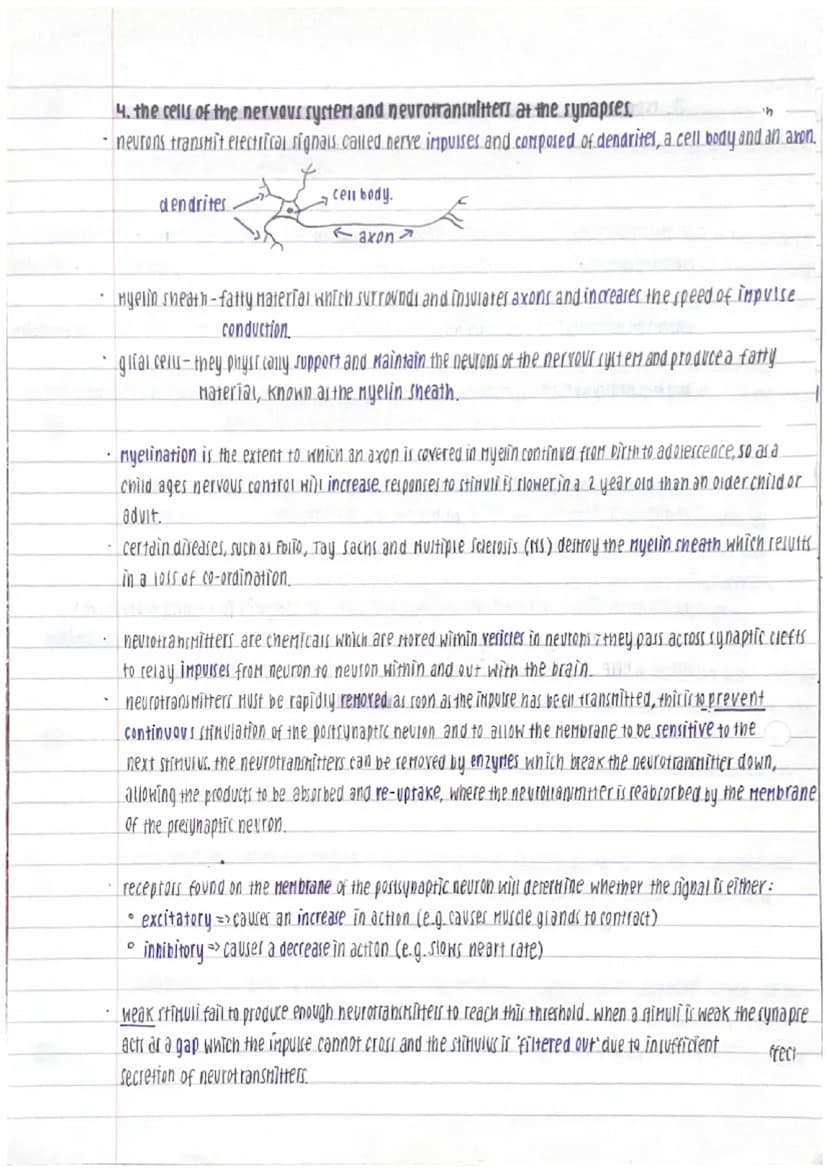 4. the cells of the nervous system and neurotransmitters at the synapses.
· neurons transmit electrical signals called nerve impulses and composed of dendrites, a cell body and an axon.
dendrites
cell body.
← axon →
· Myelin sheath - fatty material which surrounds and insulates axons and increases the speed of impulse
conduction.
· glial cells - they physically support and maintain the neurons of the nervous system and produce a fatty
material, known as the myelin sheath.
· Myelination is the extent to which an axon is covered in myelin continues from birth to adolescence, so as a
child ages nervous control will increase. responses to stimuli is slower in a 2 year old than an older child or
adult.
· certain diseases, such as Polio, Tay Sachs and Multiple Sclerosis (MS) destroy the myelin sheath which results
in a loss of co-ordination.
· neurotransmitters are chemicals which are stored within vesicles in neurons; they pass across synaptic clefts
to relay impulses from neuron to neuron within and out with the brain.
· neurotransmitters must be rapidly removed as soon as the impulse has been transmitted, this is to prevent
continuous stimulation of the postsynaptic neuron and to allow the membrane to be sensitive to the
next stimulus. the neurotransmitters can be removed by enzymes which break the neurotransmitter down,
allowing the products to be absorbed and re-uptake, where the neurotransmitter is reabsorbed by the membrane
of the presynaptic neuron.
· receptors found on the membrane of the postsynaptic neuron will determine whether the signal is either:
° excitatory => causes an increase in action (e.g. causes muscle glands to contract)
° inhibitory => causes a decrease in action (e.g. slows heart rate)
· weak stimuli fail to produce enough neurotransmitters to reach this threshold. when a stimuli is weak the synapse
acts as a gap which the impulse cannot cross and the stimulus is 'filtered out' due to insufficient
secretion of neurotransmitters.
ffect